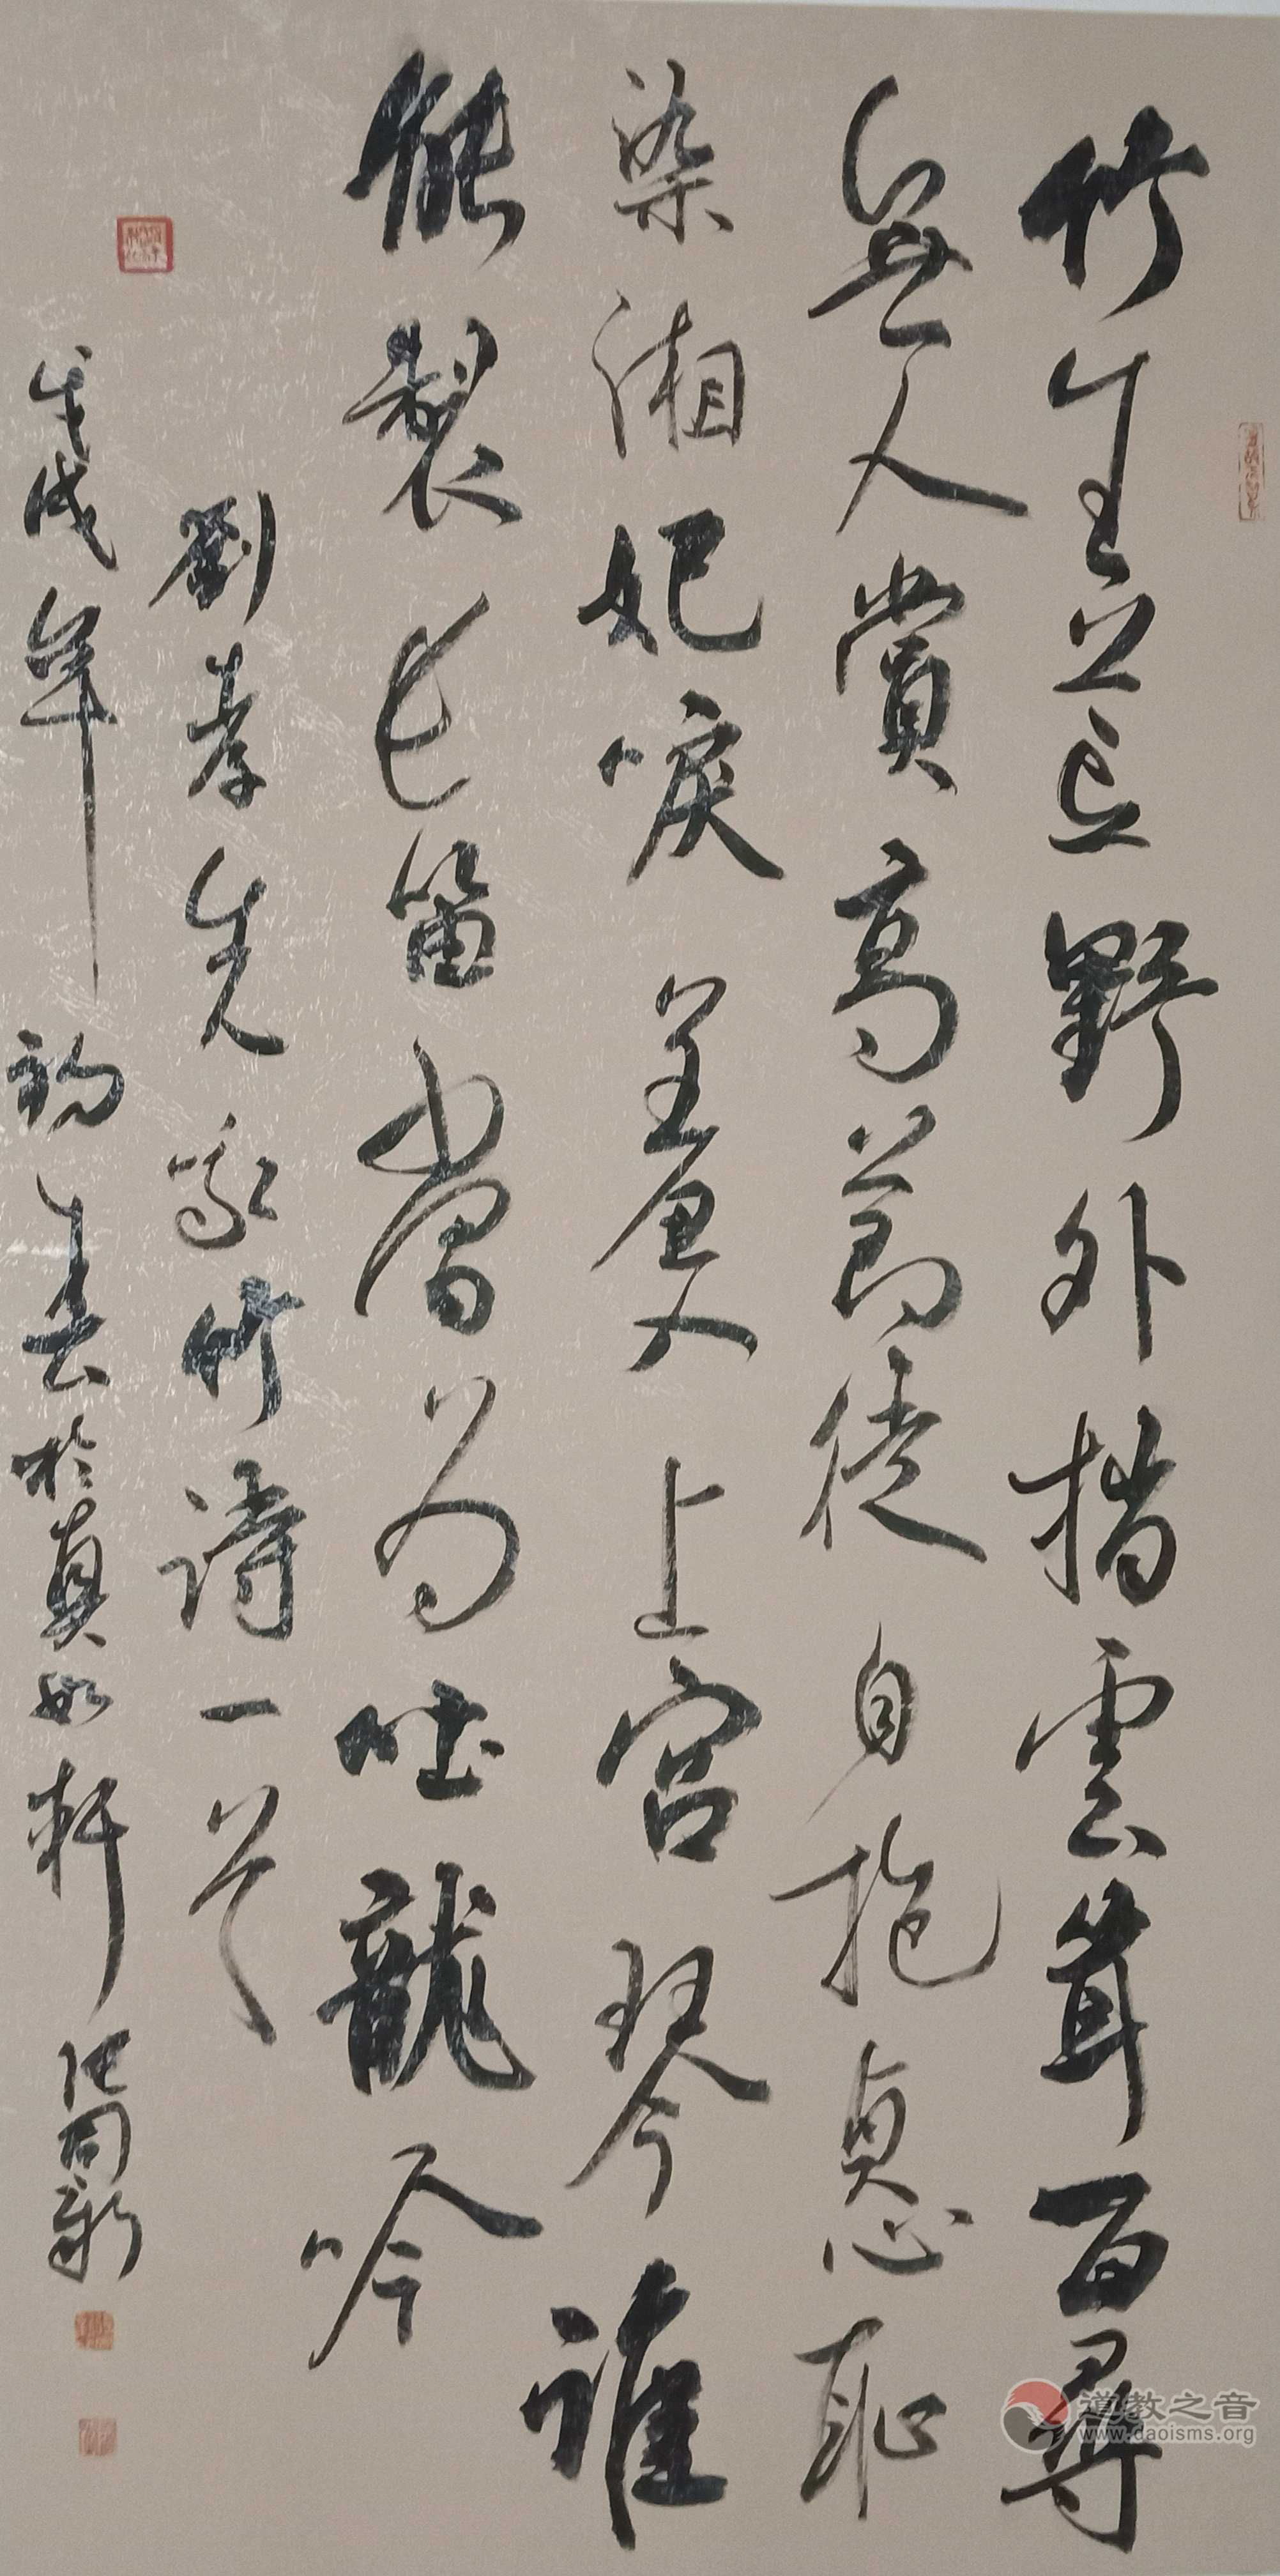 竹生空野外梢雲聳百尋
無人賞高節徒自抱貞心恥
染湘妃淚羞入上宮琴誰
能製長笛當為吐龍吟
劉孝先詠竹詩一首
戊戌年初春於真如軒
道教之音
www.daoisms.org